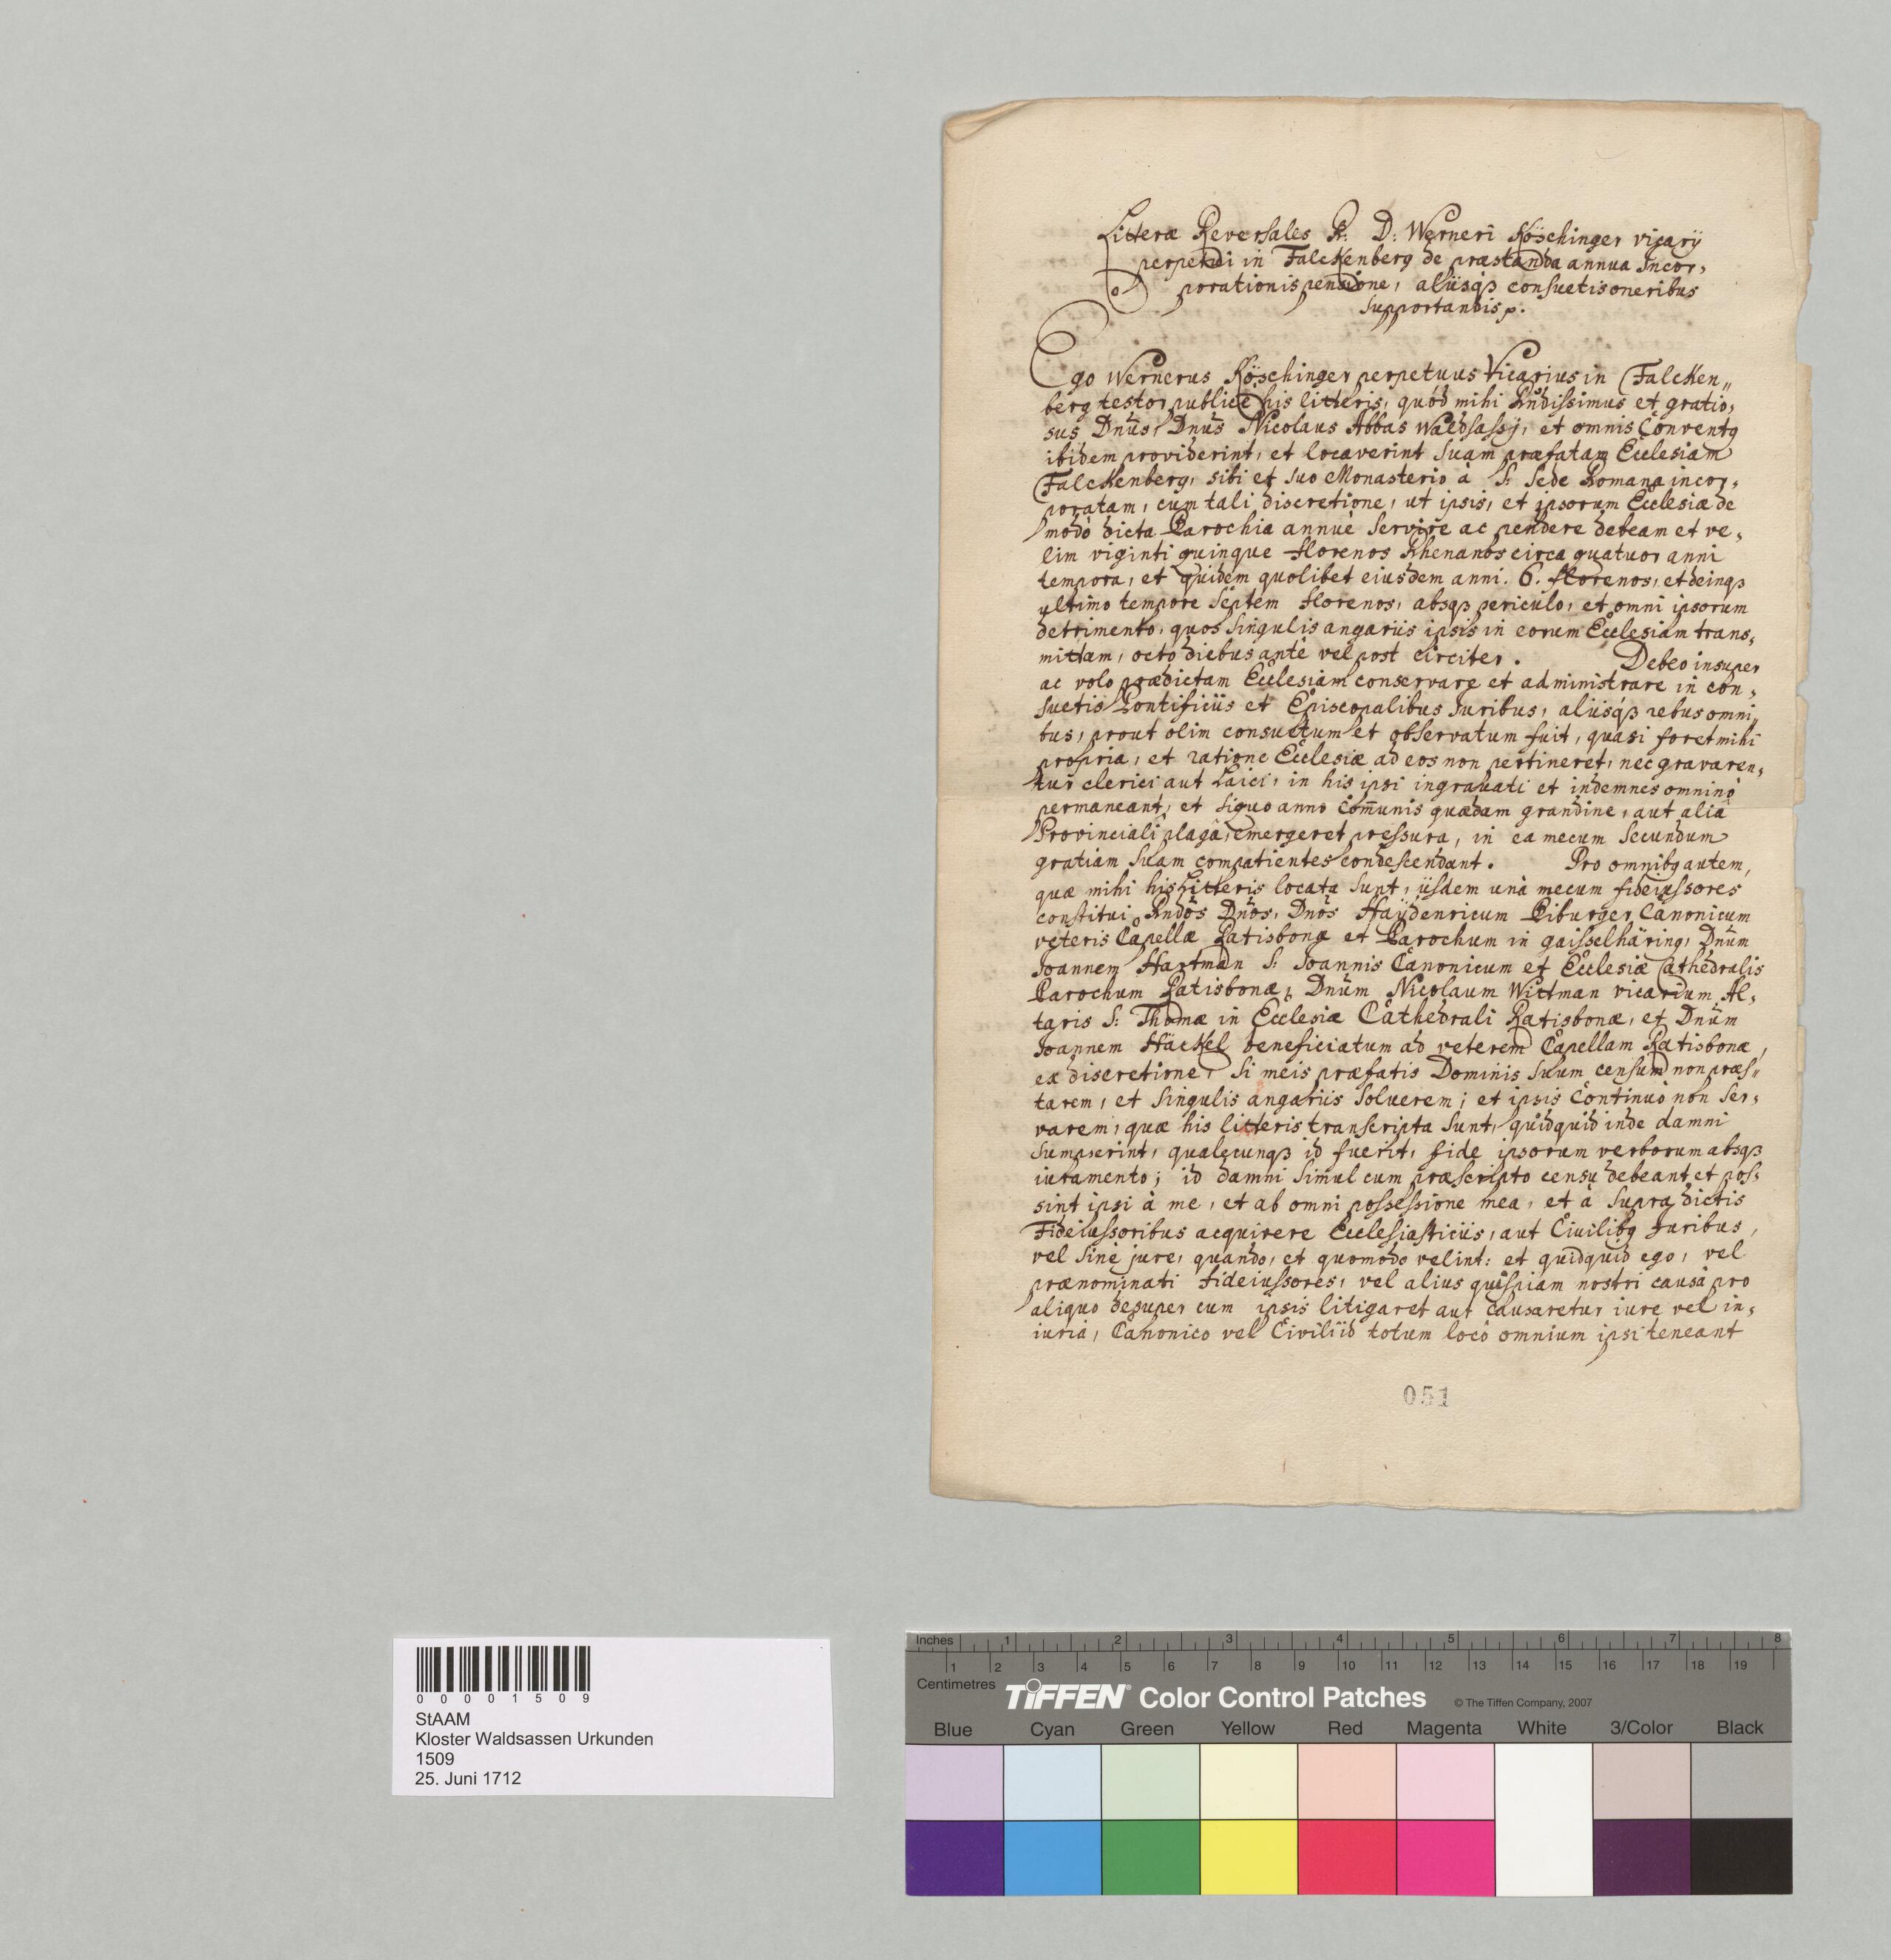 Litteræ Reversales R: D: Werneri Köschinger vicarÿ
perpetui in Falckenberg de præstanda annua Incor,
porationis pensione, aliisqȝ consuetis oneribus
supportandis p.
Ego Wernerus Köschinger perpetuus Vicarius in Falcken,,
berg testor publicè his litteris, quód mihi Rndissimus et gratio,
sus Dnūs, Dnūs Nicolaus Abbas Waldsassÿ, et omnis Conventq
ibidem providerint, et locaverint suam præfatam Ecclesiam
Falckenberg, sibi et suo Monasterio à S: Sede Romana incor,
poratam, cum tali discretione, ut ipsis, et ipsorum Ecclesiæ de
modò dicta Parochia annuè servire ac pendere debeam et ve,
lim viginti quinque florenos Rhenanos circa quatuor anni
tempora, et quidem quolibet eiusdem anni. 6. florenos, et deinqȝ
ultimo tempore septem florenos, absqȝ periculo, et omni ipsorum
detrimento, quos singulis angariis ipsis in eorum Ecclesiam trans,
mittam, octo diebus antè vel post circiter. Debeo insuper
ac volo prædictam Ecclesiam conservare et administrare in con,
suetis Pontificiis et Episcopalibus Iuribus, aliisqȝ rebus omni,,
bus, prout olim consuetum et observatum fuit, quasi foret mihi
propria, et ratione Ecclesiæ ad eos non pertineret, nec gravaren,
tur clerici aut Laici, in his ipsi ingravati et indemnes omninò
permaneant, et siquo anno com̄unis quædam grandine, aut aliâ
Provinciali plagâ, emergeret pressura, in ea mecum secundum
gratiam suam compatientes condescendant. Pro omnibq autem,
quæ mihi his Litteris locata sunt, iisdem unà mecum fideiussores
constitui Rndōs Dnōs, Dnōs Haÿdenricum Piburger Canonicum
veteris Capellæ Ratisbonæ et Parochum in gaisselhäring, Dnūm
Joannem Hartman S: Joannis Canonicum et Ecclesiæ Cathedralis
Parochum Ratisbonæ, Dnūm Nicolaum Wittman vicarium Al,
taris S: Thomæ in Ecclesiæ Cathedrali Ratisbonæ, et Dnūm
Joannem Häckel beneficiatum ad veterem Capellam Ratisbonæ,
ea discretione, si meis præfatis Dominis suum censum non præs,,
tarem, et singulis angariis soluerem; et ipsis continuò non ser,
varem, quæ his litteris transcripta sunt, quidquid inde damni
sumpserint, qualecunqȝ id fuerit, fide ipsorum verborum absqȝ
iuramento; id damni simul cum præscripto censu debeant et pos,
sint ipsi à me, et ab omni possessione mea, et à supra dictis
Fideiussoribus acquirere Ecclesiasticiis, aut Civilibq Iuribus,
vel sine jure, quando, et quomodo velint: et quidquid ego, vel
prænominati fideiussores, vel alius quispiam nostri causâ pro
aliquo desuper cum ipsis litigaret aut causaretur iure vel in,
iuriâ, Canonico vel Civili id totum locò omnium ipsi teneant
051
00001509
StAAM
Kloster Waldsassen Urkunden
1509
25. Juni 1712
Inches 1 2 3 4 5 6 7 8
1 2 3 4 5 6 7 8 9 10 11 12 13 14 15 16 17 18 19
Centimetres
TIFFEN® Color Control Patches © The Tiffen Company, 2007
Blue Cyan Green Yellow Red Magenta White 3/Color Black